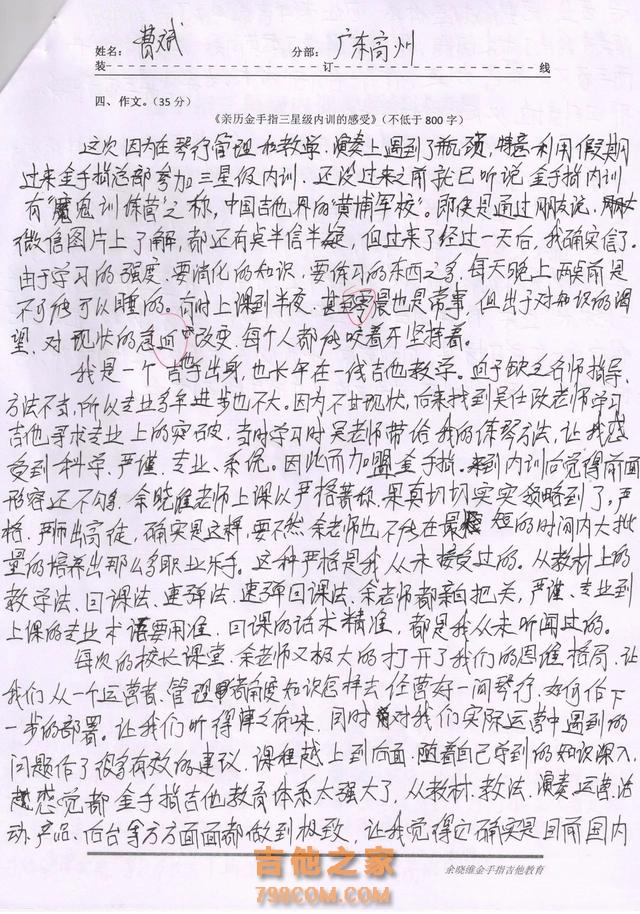 姓名: 曹斌 分部: 广东高州
装 订 线
四、作文。(35 分)
《亲历金手指三星级内训的感受》(不低于 800 字)
这次因为在琴行管理和教学、演奏上遇到了瓶颈,特意利用假期
过来金手指总部参加三星级内训、还没过来之前就已听说金手指内训
有"魔鬼训练营"之称,中国吉他界的"黄埔军校"。即使是通过朋友说、朋友
微信图片上了解,都还有点半信半疑,但过来了经过一天后,我确实信了。
由于学习的强度、要消化的知识、要练习的东西之多,每天晚上两点前是
不可能可以睡的。有时上课到半夜、甚至零晨也是常事,但出于对知识的渴
望、对现状的急迫改变、每个人都能咬着牙坚持着。
我是一个吉他手出身,也长年在一线吉他教学。迫于缺乏名师指导、
方法不当,所以专业多年进步也不大。因为不甘现状,后来找到吴任政老师学习
吉他寻求专业上的突破,当时学习时吴老师带给我的练琴方法,让我感
受到科学、严谨、专业、系统。因此而加盟金手指。来到内训后觉得前面
形容还不够,余晓维老师上课以严格著称,果真切切实实领略到了,严
格、严师出高徒,确实是这样,要不然余老师也不能在最短的时间内大批
量的培养出那么多职业乐手。这种严格是我从未接受过的。从教材上的
教学法、回课法、速弹法、速弹回课法、余老师都亲自把关,严谨、专业到
上课的专业术语要用准、回课的话术精准,都是我从未听闻过的。
每次的校长课堂、余老师又极大的打开了我们的思维格局、让
我们从一个运营者、管理者角度知识怎样去经营好一间琴行、如何作下
一步的部署。让我们听得津津有味、同时对我们实际运营中遇到的
问题作了很多有效的建议、课程越上到后面、随着自己学到的知识深入、
越感觉都金手指吉他教育体系太强大了,从教材、教法、演奏、运营、活
动、产品、后台等方方面面都做到极致,让我觉得它确实是目前国内
吉他之家
798COM.COM
余晓维金手指吉他教育